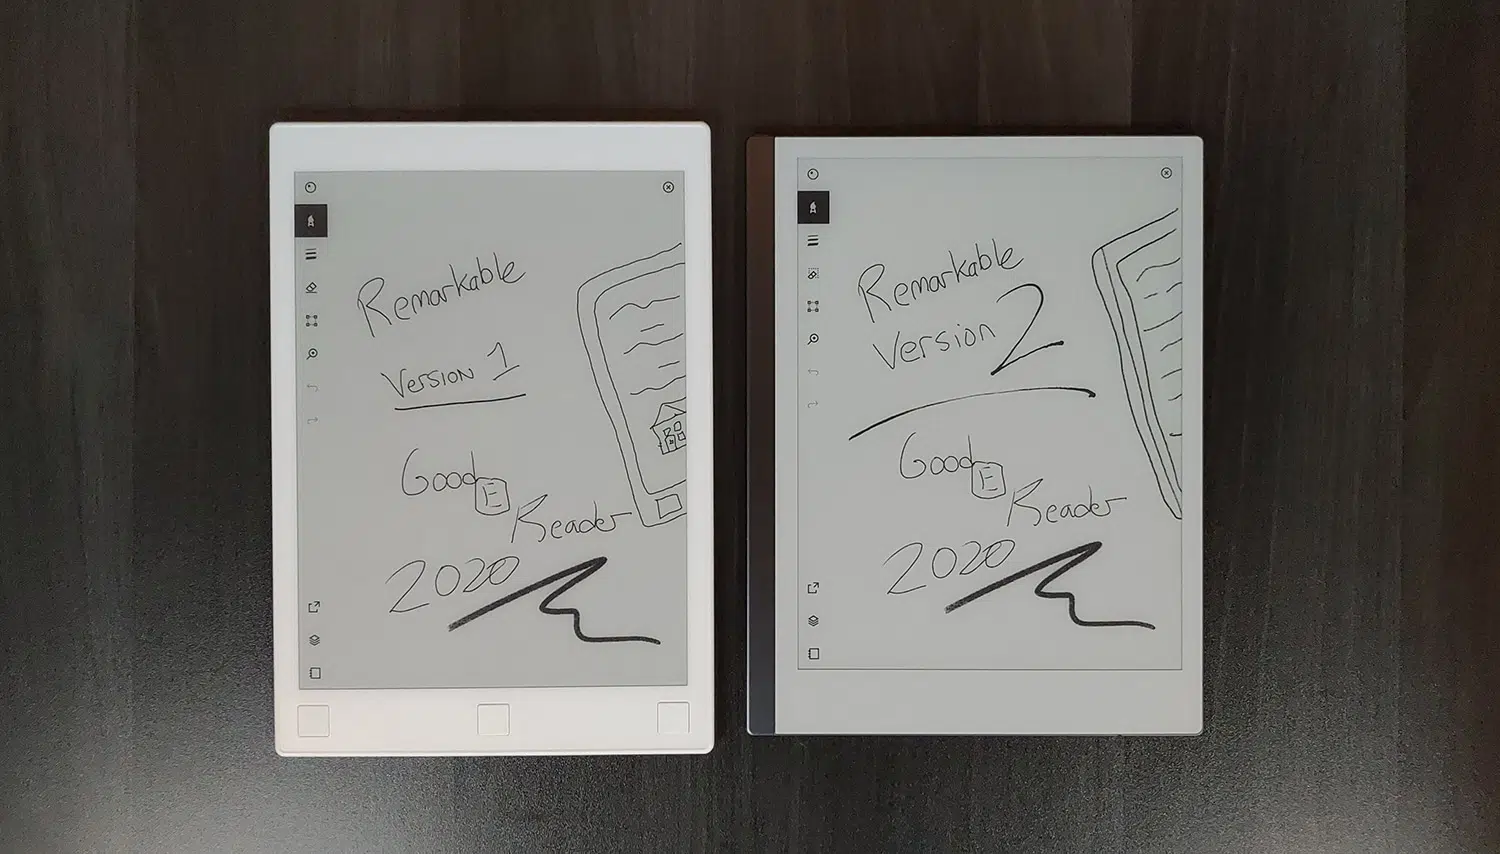 Remarkable
Version 1
Good
E
Reader
2020
Remarkable
Version 2
Good
E
Reader
2020